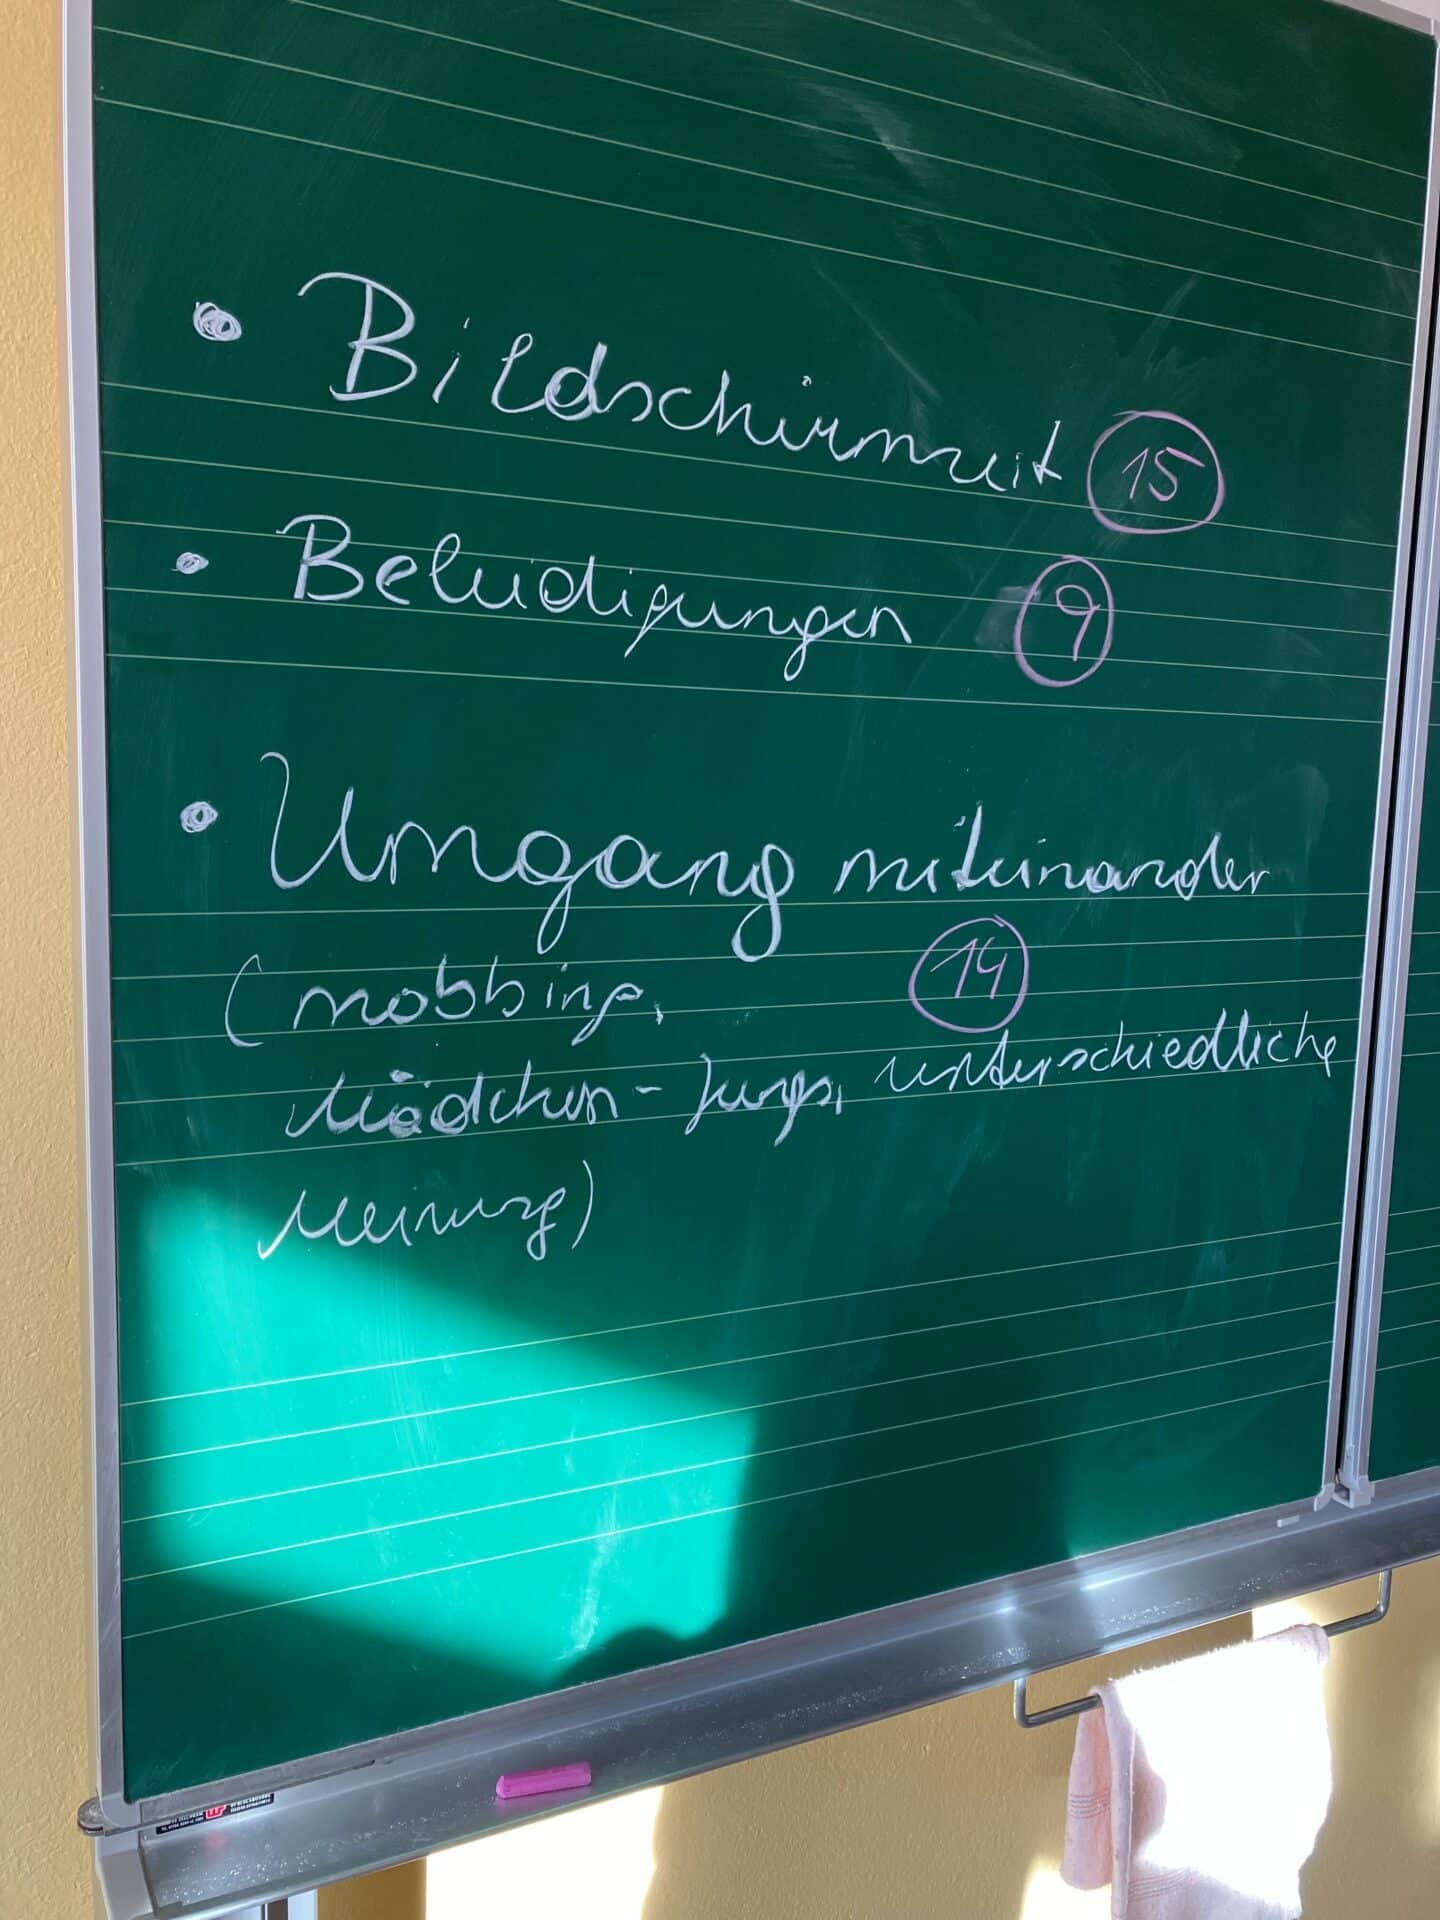 • Bildschirmzeit 15
• Beleidigungen 9
• Umgang miteinander
(mobbing, 14
Mädchen - Jungs, unterschiedliche
Meinung)